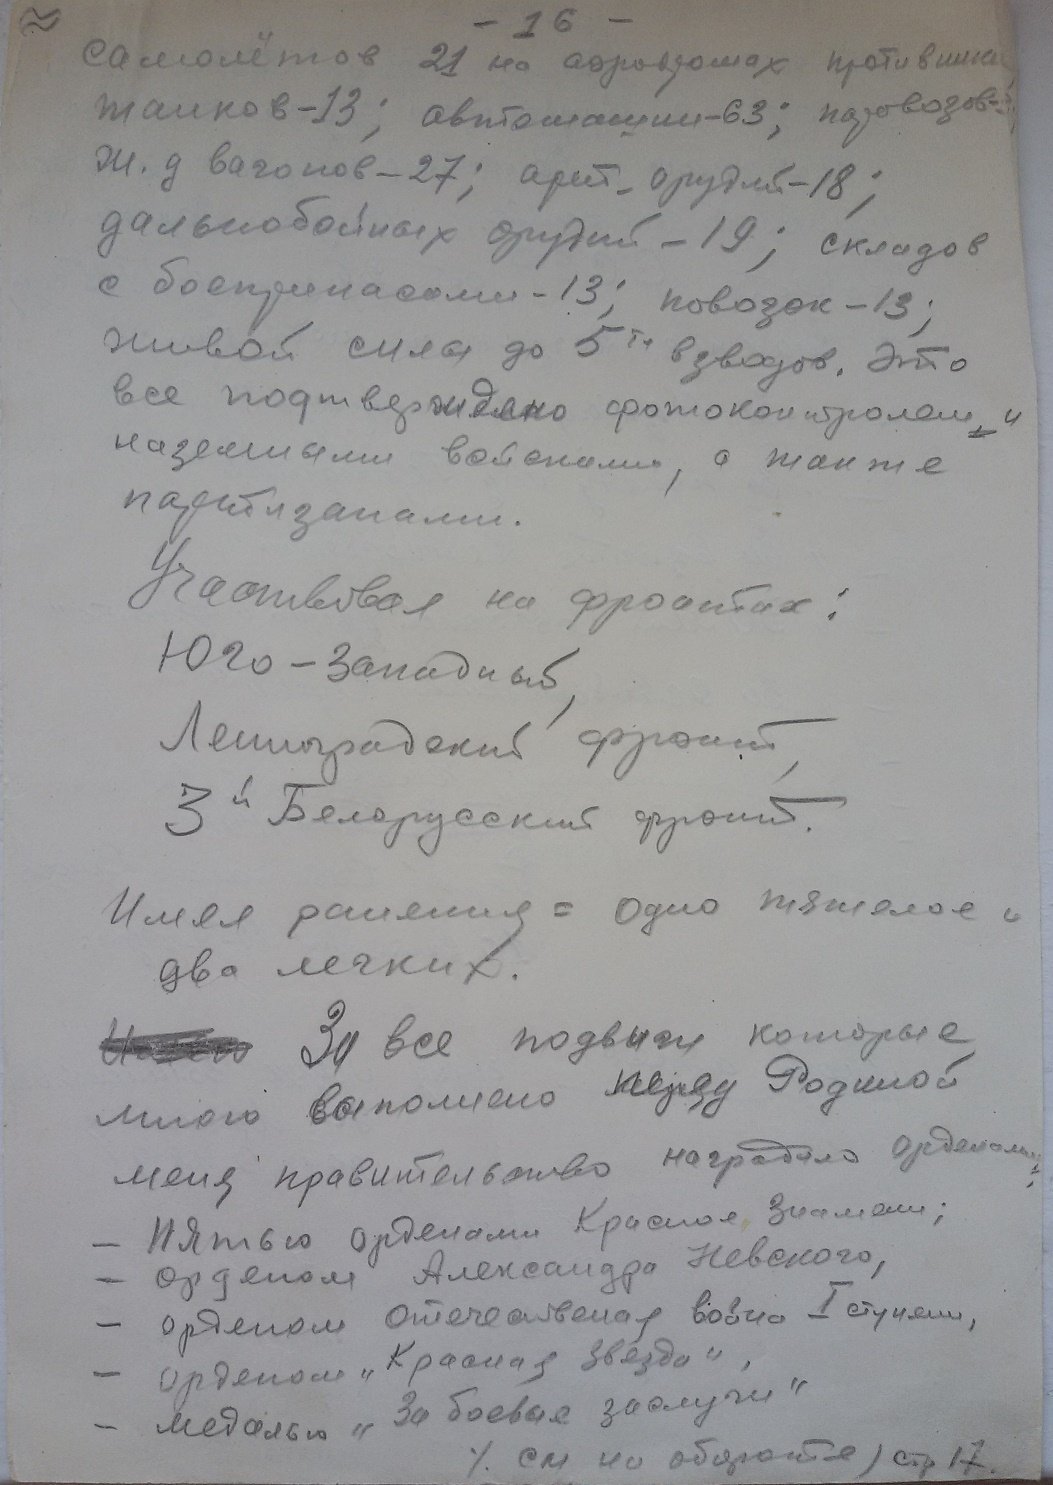 - 16 -
самолётов 21 на аэродромах противника
танков-13; автомашин-63; паровозов-
ж. д вагонов-27; арт. орудий-18;
дальнобойных орудий-19; складов
с боеприпасами-13; повозок-13;
живой силы до 5ти взводов. Это
все подтверждено фотоконтролем, и
наземными войсками, а также
партизанами.
Участвовал на фронтах:
Юго-Западный,
Ленинградский фронт,
3й Белорусский фронт.
Имея ранения = одно тяжелое и
два легких.
За все подвиги которые
мною выполнено перед Родиной
меня правительство наградило орденами:
- Пятью орденами Красное Знамени;
- орденом Александра Невского,
- орденом Отечественая война I ступени,
- орденом „Красная Звезда",
- медалью „За боевые заслуги"
/. см на обороте) стр 17.